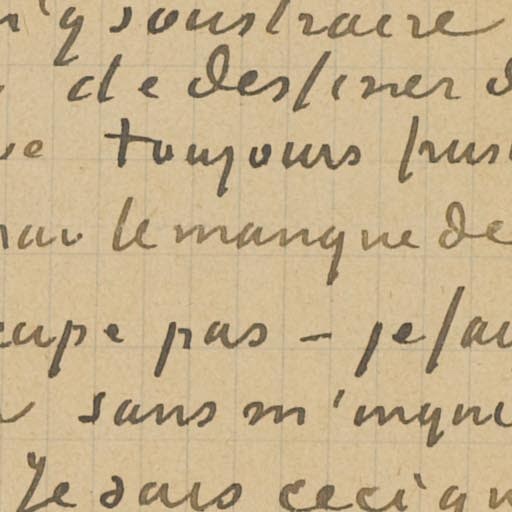 m'y soustraire
de destiner d
toujours frus
par le manque de
cupe pas - je fai
sans m'inquié
Je sais ceci qu